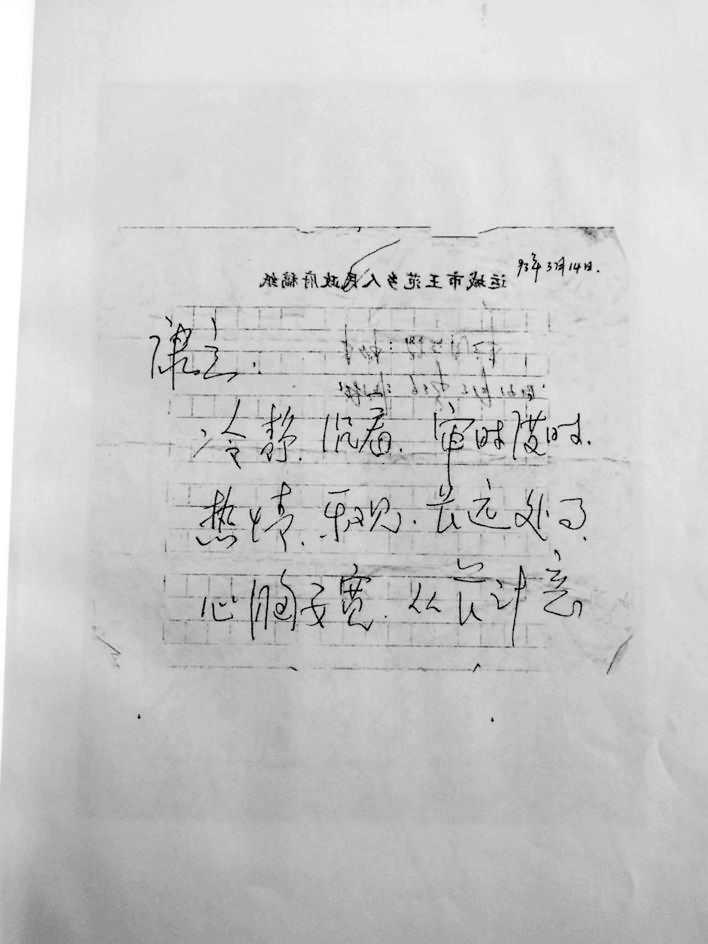 93年3月14日.
运城市王范乡人民政府稿纸
康立.
冷静.沉着.审时度时.
热情.乐观.长远处
心胸要宽.从长计意